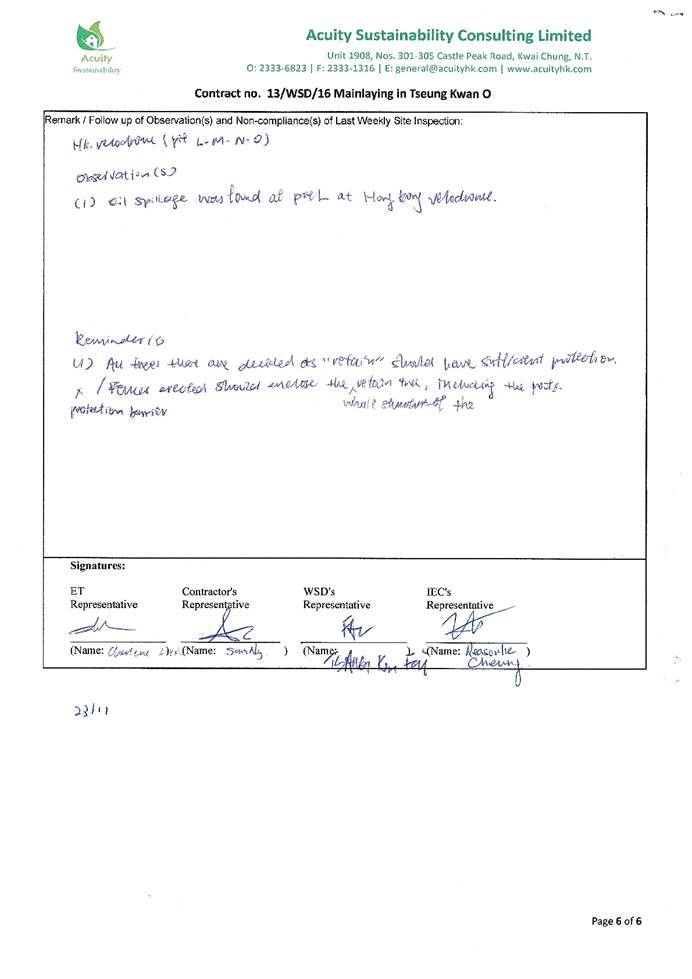 Acuity
Sustainability
Acuity Sustainability Consulting Limited
Unit 1908, Nos. 301-305 Castle Peak Road, Kwai Chung, N.T.
O: 2333-6823 | F: 2333-1316 | E: general@acuityhk.com | www.acuityhk.com
Contract no. 13/WSD/16 Mainlaying in Tseung Kwan O
Remark / Follow up of Observation(s) and Non-compliance(s) of Last Weekly Site Inspection:
Hk. velodrome (pit L-M-N-O)
Observation(s)
(1) Oil spillage was found at pit L at Hong Kong velodrome.
Reminder(s)
(1) All trees that are decided as "retain" should have sufficient protection.
x / Fences erected should enclose the retain tree, including the roots.
protection barrier
whole structure of the
Signatures:
ET Contractor's WSD's IEC's
Representative Representative Representative Representative
(Name: Charlene (Name: Sam Ng ) (Name: ) (Name: Cheung )
23/11
Page 6 of 6